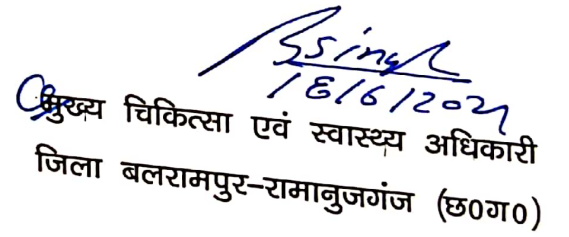 Bsingh
18/6/2021
मुख्य चिकित्सा एवं स्वास्थ्य अधिकारी
जिला बलरामपुर-रामानुजगंज (छ०ग०)